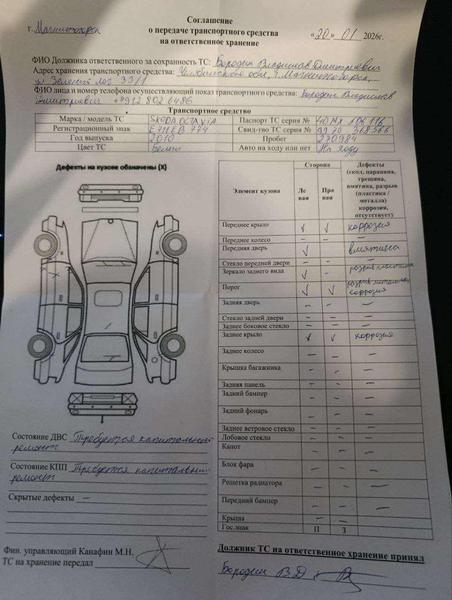 Соглашение
о передаче транспортного средства
на ответственное хранение
г. Магнитогорск «20» 01 2026г.
ФИО Должника ответственного за сохранность ТС: Бородин Владислав Дмитриевич
Адрес хранения транспортного средства: Челябинская обл., г. Магнитогорск,
ФИО лица и номер телефона осуществляющий показ транспортного средства: Бородин Владислав
Дмитриевич +7912 802 6486
Транспортное средство
Марка / модель ТС SKODA OCTAVIA Паспорт ТС серия №
Регистрационный знак Свид-тво ТС серия №
Год выпуска 2010 Пробег 270984
Цвет ТС Белый Авто на ходу или нет На ходу
Дефекты на кузове обозначены (X)
Элемент кузова Сторона Левая Правая Дефекты (скол, царапина, трещина, вмятина, разрыв (пластика / металла) коррозия, отсутствует)
Переднее крыло ✓ ✓ коррозия
Переднее колесо – – –
Передняя дверь ✓ – вмятина
Стекло передней двери – – –
Зеркало заднего вида ✓ –
Порог ✓ ✓ коррозия
Задняя дверь – – –
Стекло задней двери – – –
Заднее боковое стекло – – –
Заднее крыло ✓ ✓ коррозия
Заднее колесо – – –
Крышка багажника – – –
Задняя панель – – –
Задний бампер – – –
Задний фонарь – – –
Заднее ветровое стекло – – –
Лобовое стекло – – –
Капот – – –
Блок фара – – –
Решетка радиатора – – –
Передний бампер – – –
Крыша – – –
Гос.знак П З
Состояние ДВС Требуется капитальный
ремонт
Состояние КПП Требуется капитальный
ремонт
Скрытые дефекты –
Фин. управляющий Канафин М.Н.
ТС на хранение передал
Должник ТС на ответственное хранение принял
Бородин В.Д